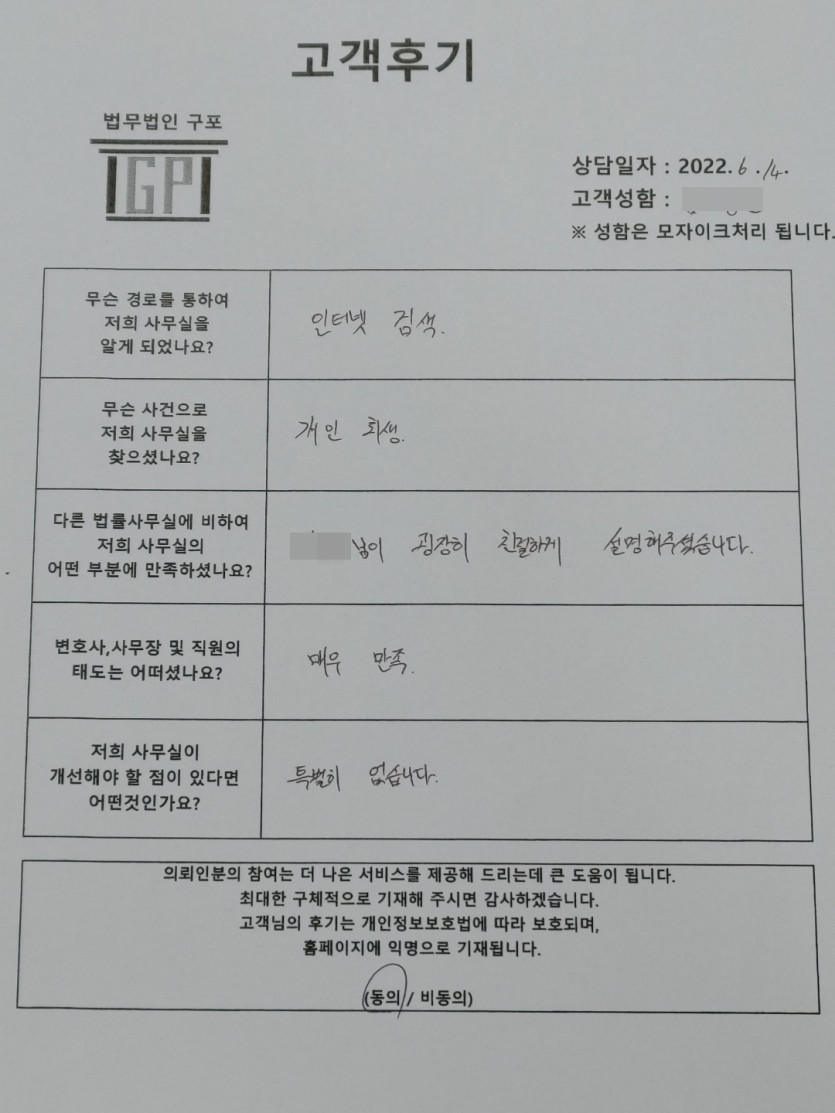 고객후기
법무법인 구포
IGPI
상담일자 : 2022. 6. 14.
고객성함 :
※ 성함은 모자이크처리 됩니다.
무슨 경로를 통하여
저희 사무실을
알게 되었나요?
인터넷 검색.
무슨 사건으로
저희 사무실을
찾으셨나요?
개인 회생.
다른 법률사무실에 비하여
저희 사무실의
어떤 부분에 만족하셨나요?
님이 굉장히 친절하게 설명해주셨습니다.
변호사,사무장 및 직원의
태도는 어떠셨나요?
매우 만족.
저희 사무실이
개선해야 할 점이 있다면
어떤것인가요?
특별히 없습니다.
의뢰인분의 참여는 더 나은 서비스를 제공해 드리는데 큰 도움이 됩니다.
최대한 구체적으로 기재해 주시면 감사하겠습니다.
고객님의 후기는 개인정보보호법에 따라 보호되며,
홈페이지에 익명으로 기재됩니다.
(동의 / 비동의)